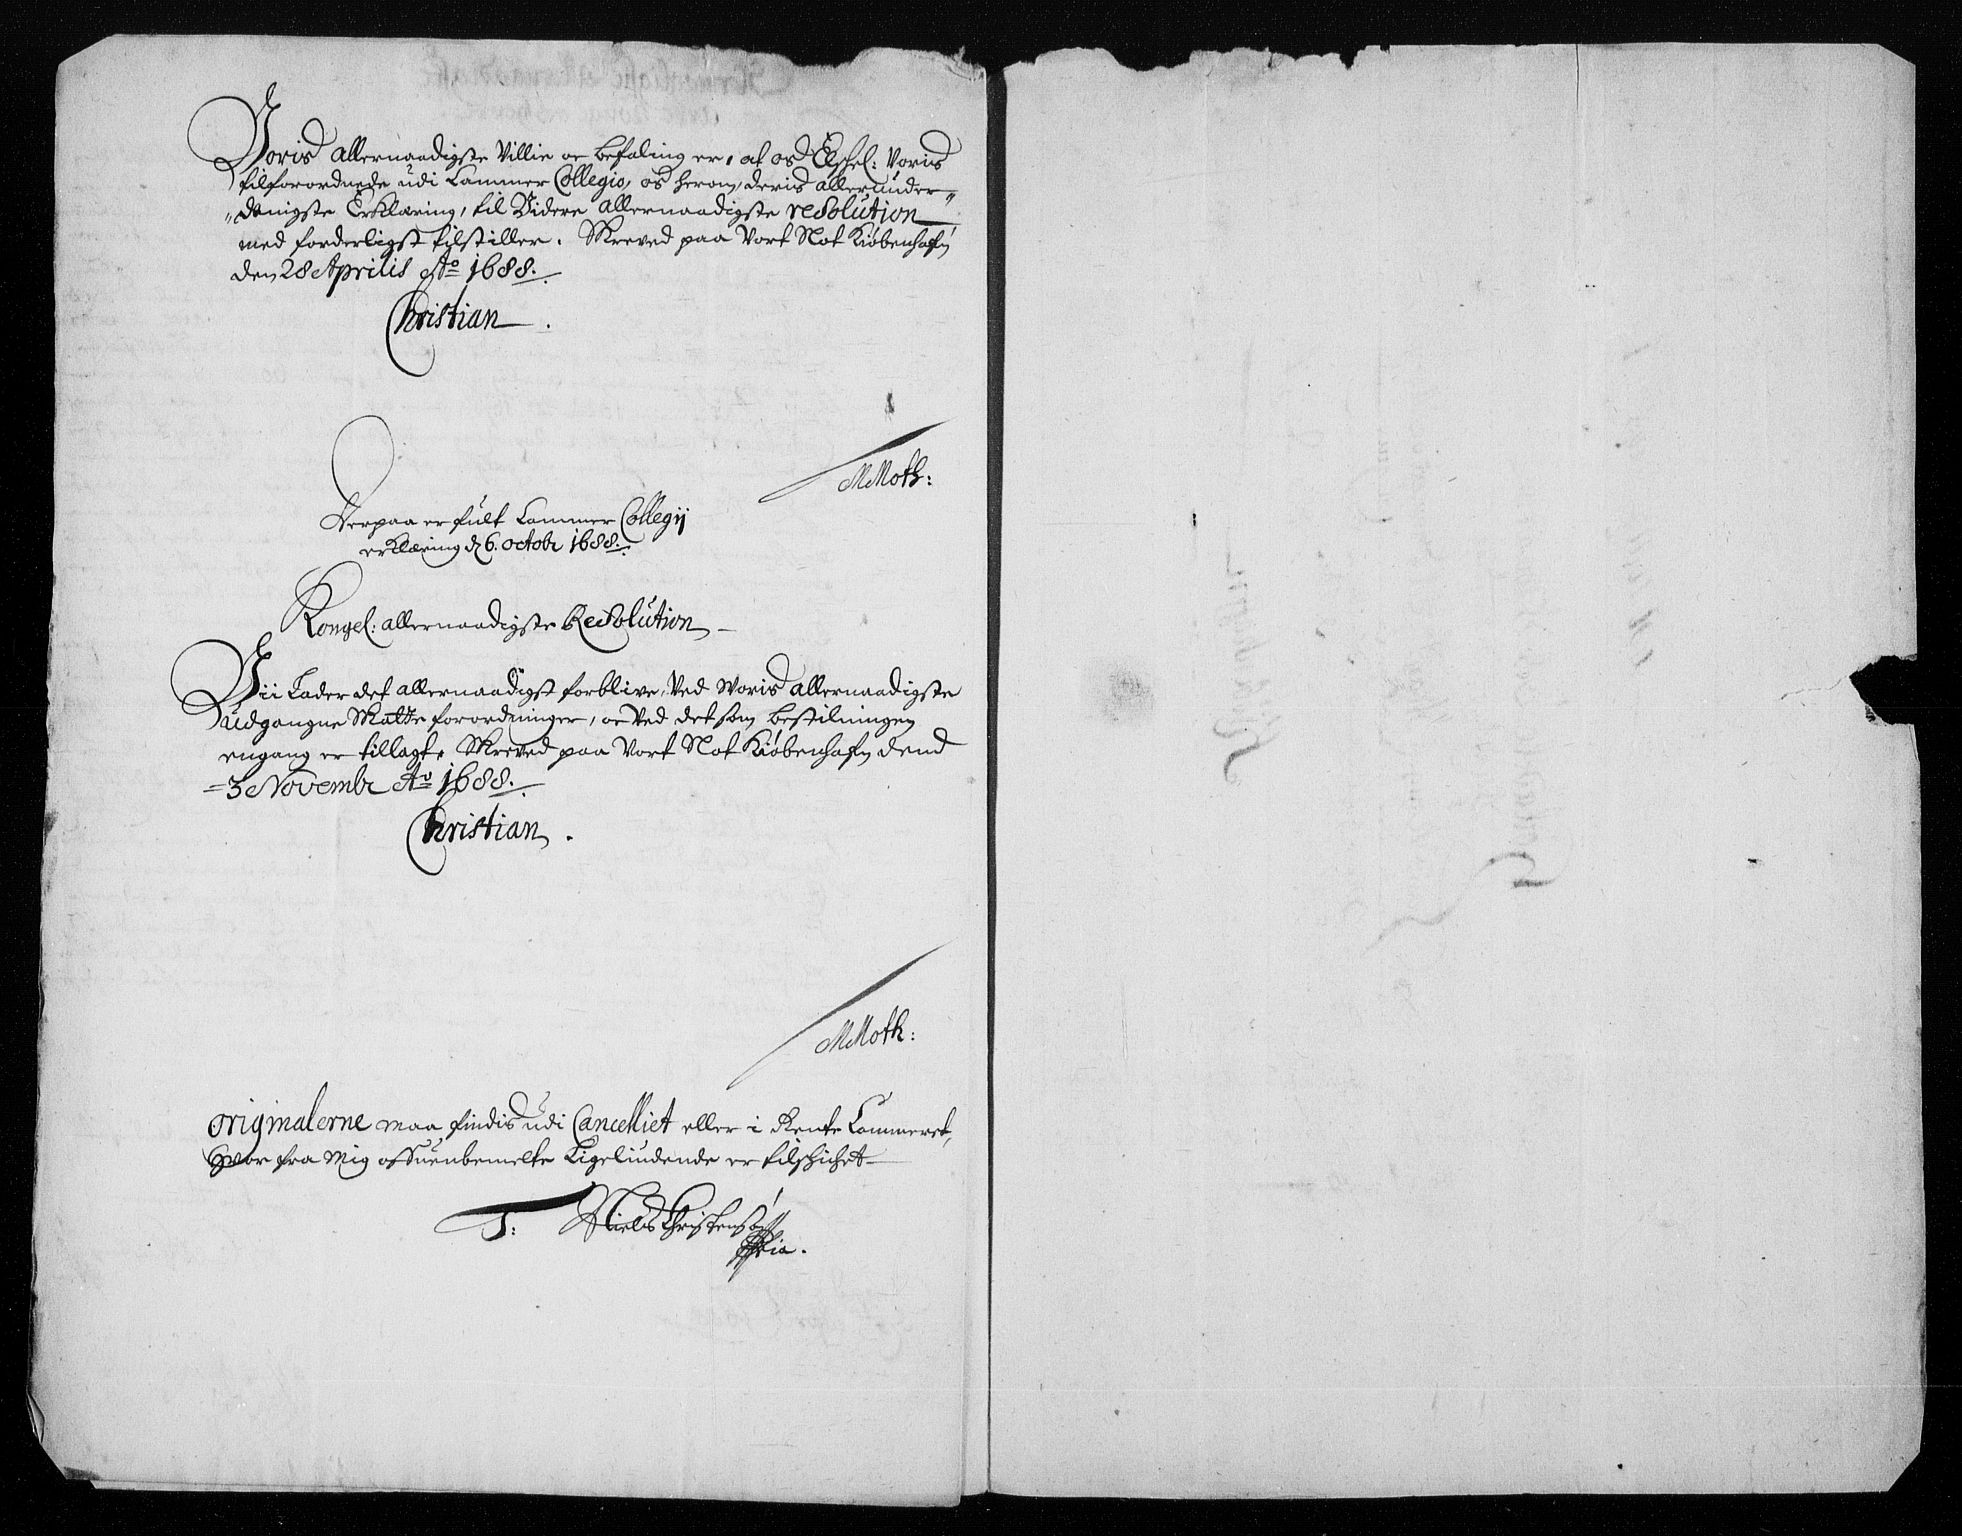 Voris allernaadigste Villie oc befaling er, at os Elschel: Voris
tilforordnede udi Cammer Collegio, os herom, deris allerunder-
„danigste Erklæring, til Videre allernaadigste resolution
med forderligst tilstiller. Skreved paa Vort Slot Kiøbenhafn
den 28 Aprilis Ao 1688.
Christian.
MMoth:
Herpaa er fult Cammer Collegij
erklæring d 6. octobr 1688.
Kongel: allernaadigste Resolution
Vii Lader det allernaadigst forblive, Ved Woris allernaadigste
udgangne Skatte forordninger, oc Ved det som bestilningen
engang er tillagt. Skreved paa Vort Slot Kiøbenhafn dend
3 Novembr Ao 1688.
Christian.
MMoth:
originalerne maa findis udi Cancelliet eller i Rente Cammeret,
hvor fra mig ofuenbemelte Ligeliudende er tilschichet
T: Niels Christensøn